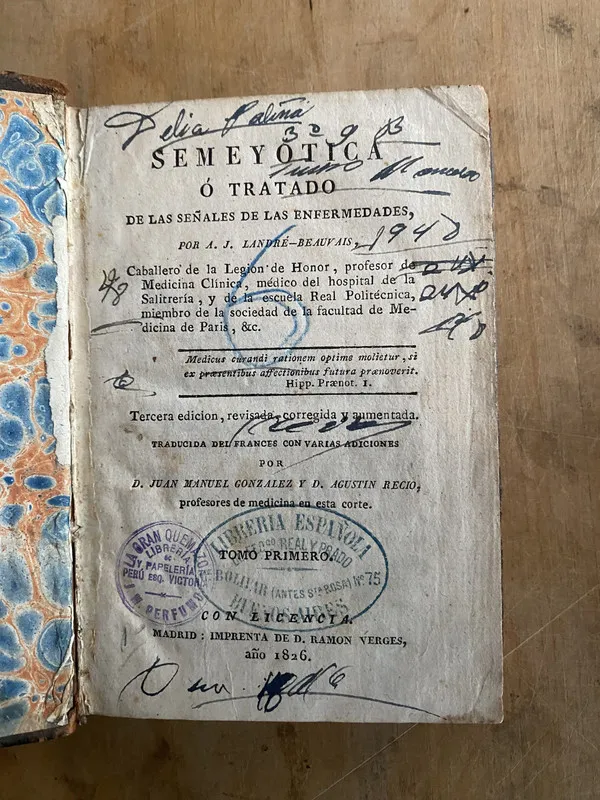 Delia
SEMEYÓTICA
Ó TRATADO
DE LAS SEÑALES DE LAS ENFERMEDADES,
POR A. J. LANDRÉ-BEAUVAIS,
1940
Caballero de la Legion de Honor, profesor de
Medicina Clínica, médico del hospital de la
Salitrería, y de la escuela Real Politécnica,
miembro de la sociedad de la facultad de Me-
dicina de Paris, &c.
6
Medicus curandi rationem optime molietur, si
ex præsentibus affectionibus futura prænoverit.
Hipp. Prænot. 1.
Tercera edicion, revisada, corregida y aumentada.
TRADUCIDA DEL FRANCES CON VARIAS ADICIONES
POR
D. JUAN MANUEL GONZALEZ Y D. AGUSTIN RECIO,
profesores de medicina en esta corte.
LIBRERIA ESPAÑOLA
REAL Y PRADO
BOLIVAR (ANTES Sta ROSA) Nº 75
BUENOS AIRES
LA GRAN QUEMAZON
LIBRERIA
Y PAPELERIA
PERÚ ESQ. VICTORIA
TOMO PRIMERO.
CON LICENCIA.
MADRID: IMPRENTA DE D. RAMON VERGES,
año 1826.